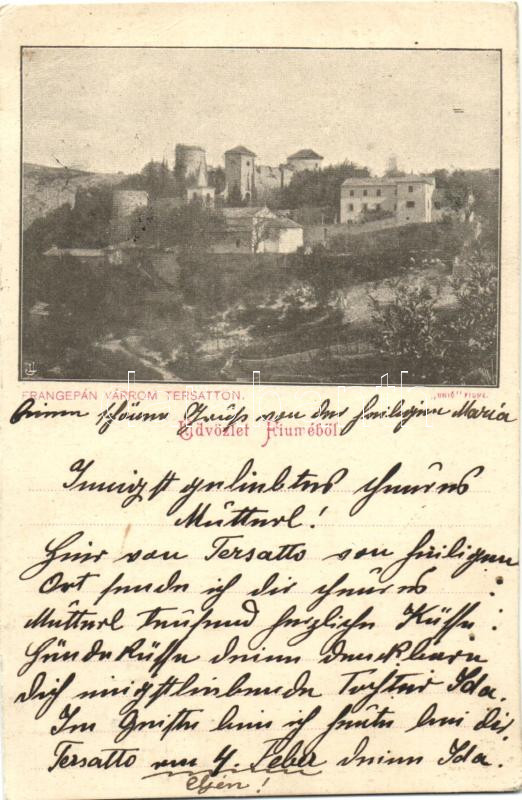 FRANGEPÁN VÁRROM TERSATTON.
„UNIÓ" FIUME
Einen schönen Gruß von der heiligen Maria
Üdvözlet Fiuméből.
Innigst geliebtes theures
Mütterl!
Hier von Tersatto von heiligen
Ort sende ich dir theures
Mütterl tausend herzliche Küsse
Händeküsse deine dankbare
dich innigstliebende Tochter Ida.
Im Geiste bin ich heute bei dir
Tersatto am 4. Feber deine Ida.
Eljén!